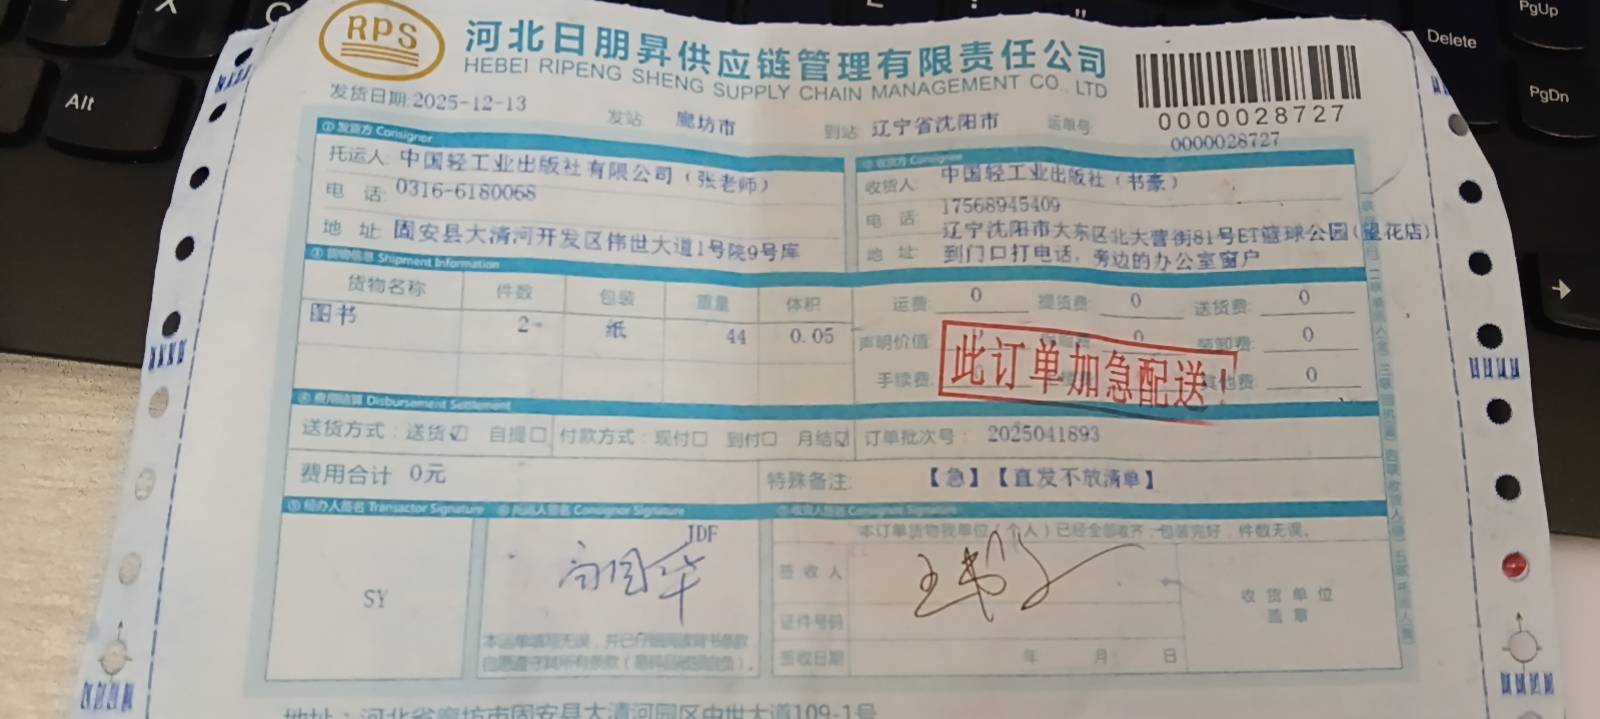 RPS
河北日朋昇供应链管理有限责任公司
HEBEI RIPENG SHENG SUPPLY CHAIN MANAGEMENT CO., LTD
0000028727
0000028727
发货日期:2025-12-13 发站 廊坊市 到站: 辽宁省沈阳市 运单号
① 发货方 Consigner
托运人 中国轻工业出版社有限公司(张老师)
电 话: 0316-6180068
地 址: 固安县大清河开发区伟世大道1号院9号库
② 收货方 Consignee
收货人: 中国轻工业出版社(书豪)
电 话: 17568945409
地 址: 辽宁沈阳市大东区北大营街81号ET篮球公园(望花店)
到门口打电话,旁边的办公室窗户
③ 货物信息 Shipment Information
货物名称 件数 包装 重量 体积
图书 2 纸 44 0.05
运费: 0 提货费: 0 送货费: 0
声明价值: 0 装卸费: 0
手续费: 其他费 0
此订单加急配送!
④ 费用结算 Disbursement Settlement
送货方式:送货☑ 自提□ 付款方式:现付□ 到付□ 月结☑ 订单批次号: 2025041893
费用合计 0元 特殊备注: 【急】【直发不放清单】
⑤ 经办人签名 Transactor Signature ⑥ 托运人签名 Consignor Signature ⑦ 收货人签名 Consignee Signature
SY
JDF
本运单填写无误,并已仔细阅读背书条款
自愿遵守其所有条款
本订单货物我单位(个人)已经全部收齐 包装完好,件数无误。
签 收 人
证件号码
签收日期 年 月 日
收 货 单 位
盖 章
Alt
Delete
PgUp
PgDn